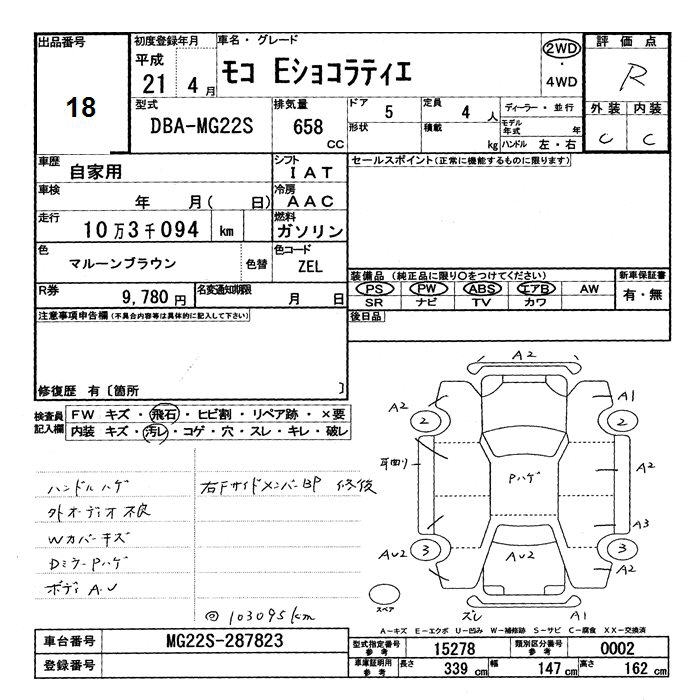 出品番号
18
初度登録年月
平成
21 4 月
車名・グレード
モコ Eショコラティエ
2WD
・
4WD
評価点
R
外装 内装
C C
型式
DBA-MG22S
排気量
658
CC
ドア 5
定員 4 人
ディーラー・並行
形状
積載 kg
モデル年式 年
ハンドル 左・右
車歴
自家用
シフト
IAT
セールスポイント(正常に機能するものに限ります)
車検
年 月( 日)
冷房
AAC
走行
10万3千094 km
燃料
ガソリン
色
マルーンブラウン
色替
色コード
ZEL
R券
9,780 円
名変通知期限
月 日
装備品(純正品に限り○をつけてください)
新車保証書
PS PW ABS エアB AW
有・無
SR ナビ TV カワ
後日品
注意事項申告欄(不具合内容等は具体的に記入して下さい)
修復歴 有〔箇所 〕
検査員記入欄
FW キズ・飛石・ヒビ割・リペア跡・×要
内装 キズ・汚レ・コゲ・穴・スレ・キレ・破レ
ハンドルハゲ
右Fサイドメンバー BP 修復
外オーディオ不良
Wカバーキズ
DミラーPハゲ
ボディ A.U
@103095km
A2
A2
A1
2
2
耳曲り
Pハゲ
A2
A3
AU2
3
AU2
3
A2
スペア
ズレ
A1
A-キズ E-エクボ U-凹み W-補修跡 S-サビ C-腐食 XX-交換済
車台番号
MG22S-287823
登録番号
型式指定番号参考
15278
類別区分番号参考
0002
車庫証明用参考
長さ 339 cm
幅 147 cm
高さ 162 cm